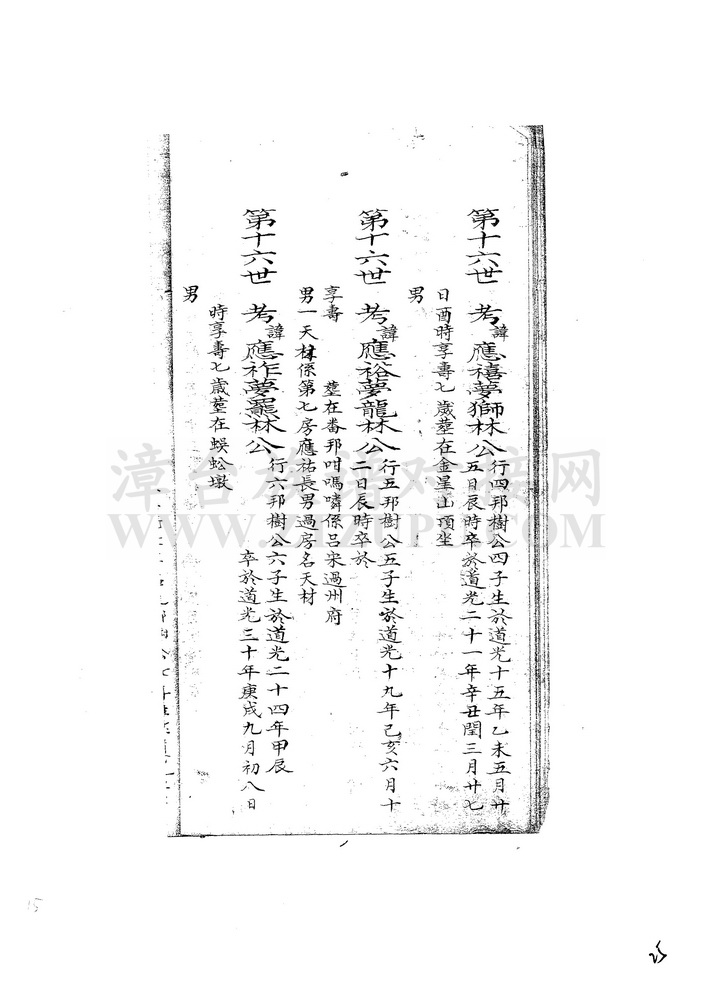 第十六世 考諱應禧夢獅林公行四邦樹公四子生於道光十五年乙未五月廿
五日辰時卒於道光二十一年辛丑閏三月廿七
日酉時享壽七歲塟在金星山頂坐
男
第十六世 考諱應裕夢龍林公行五邦樹公五子生於道光十九年己亥六月十
二日辰時卒於
享壽 塟在番邦咁嗎嶙係呂宋過州府
男一天材係第七房應祐長男過房名天材
第十六世 考諱應祚夢羆林公行六邦樹公六子生於道光二十四年甲辰
卒於道光三十年庚戌九月初八日
時享壽七歲塟在蜈蚣墩
男
漳台族譜对接网